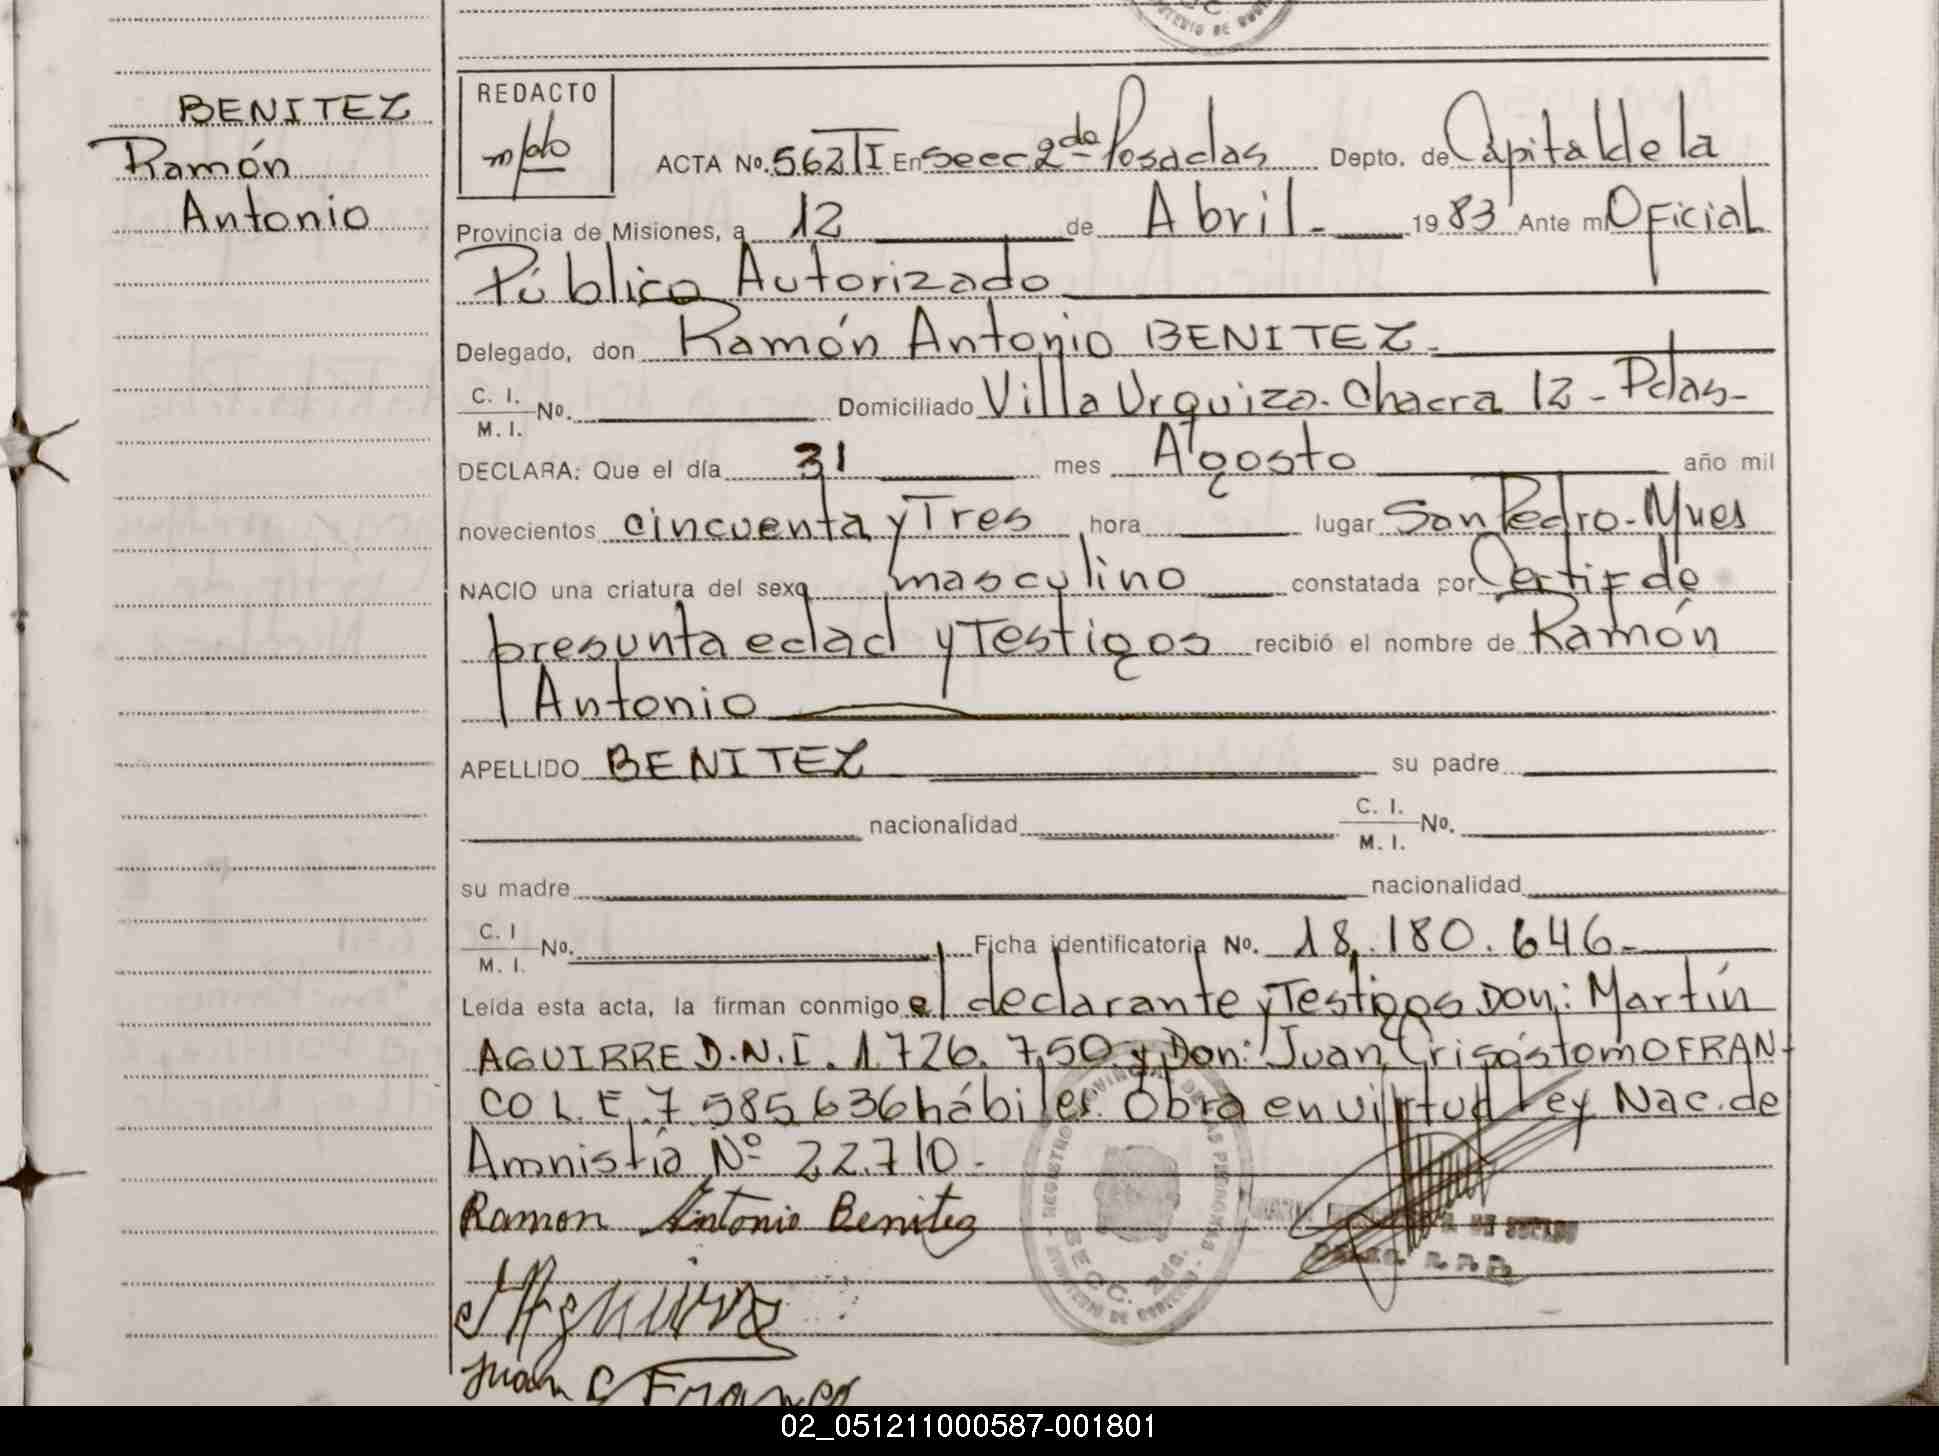 BENITEZ
Ramón
Antonio
REDACTO
ACTA No. 562 TI En Secc 2da Posadas Depto. de Capital de la
Provincia de Misiones, a 12 de Abril - 1983 Ante mi Oficial
Público Autorizado
Delegado, don Ramón Antonio BENITEZ -
C. I.
M. I. No. Domiciliado Villa Urquiza - Chacra 12 - Pdas -
DECLARA: Que el día 31 mes Agosto año mil
novecientos cincuenta y Tres hora lugar San Pedro - Mnes
NACIO una criatura del sexo masculino constatada por Certif de
presunta edad y Testigos recibió el nombre de Ramón
Antonio
APELLIDO BENITEZ su padre
nacionalidad C. I.
M. I. No.
su madre nacionalidad
C. I
M. I. No. Ficha identificatoria No. 18.180.646 -
Leída esta acta, la firman conmigo el declarante y Testigos Don: Martín
AGUIRRE D.N.I. 1.726.750 y Don: Juan Crisóstomo FRAN-
CO L.E. 7.585.636 hábiles. Obra en virtud Ley Nac. de
Amnistía Nº 22.710 -
Ramon Antonio Benitez
REGISTRO PROVINCIAL DE LAS PERSONAS
SECC. 2da.
MINISTERIO DE GOBIERNO
MAguirre
Juan C Franco
02_051211000587-001801